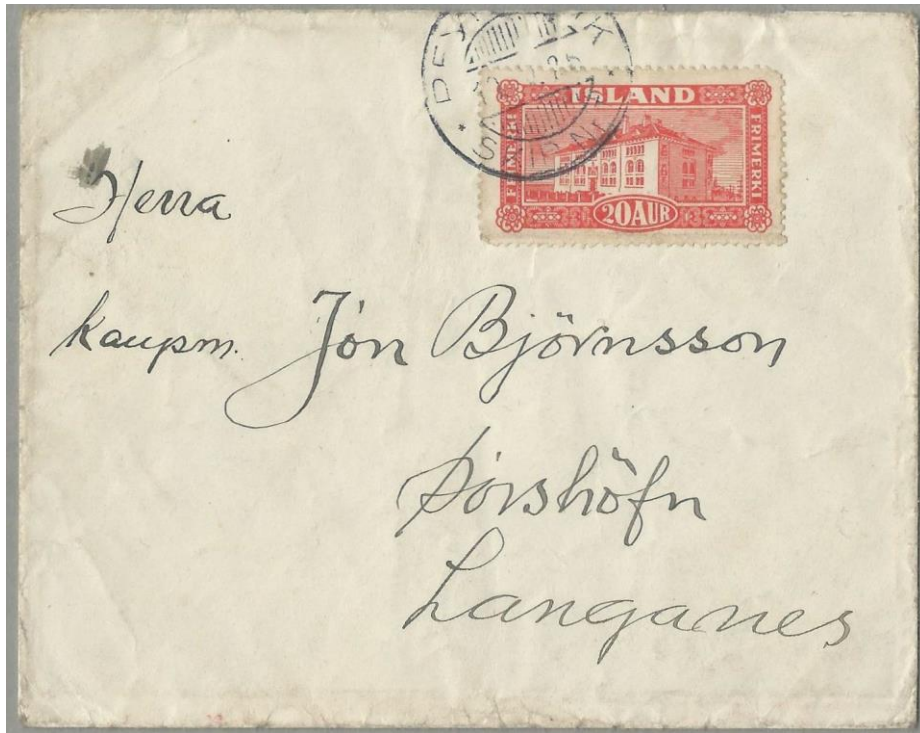 ÍSLAND
FRIMERKI
FRIMERKI
20 AUR
Herra
kaupm. Jón Björnsson
Þórshöfn
Langanes